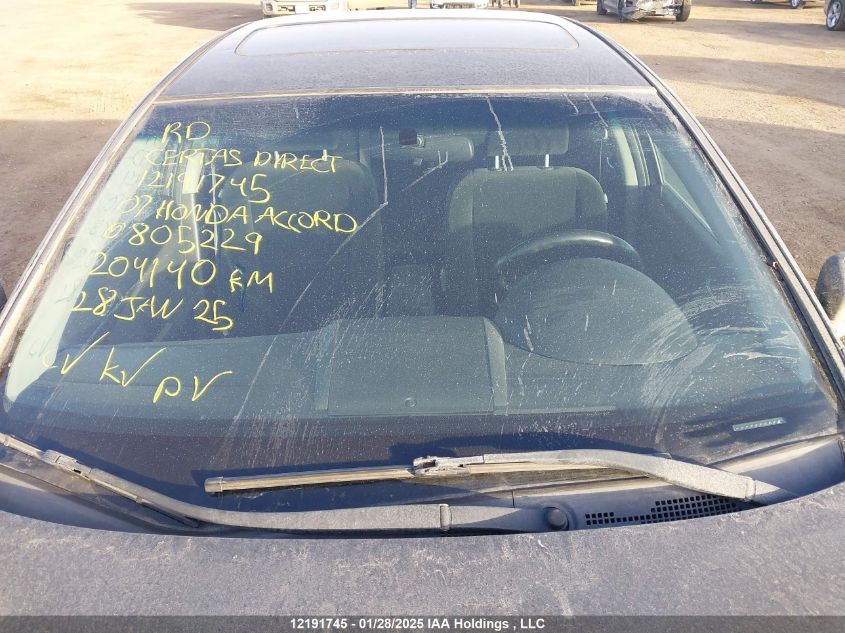 RD
CERTAS DIRECT
12191745
07 HONDA ACCORD
805229
204140 KM
28 JAN 25
KV PV
12191745 - 01/28/2025 IAA Holdings , LLC